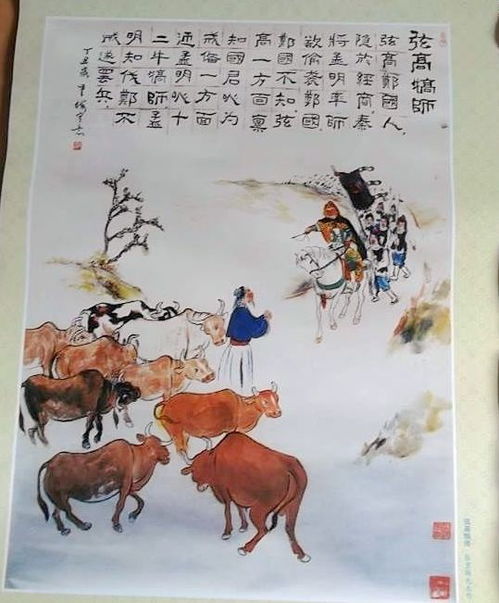 弦高犒師
弦高鄭國人,
隐於經商,秦
將孟明率師
欲偷袭鄭國
鄭國不知,弦
高一方面禀
知國君以为
戒備一方面
迎孟明以十
二牛犒師,孟
明知伐鄭不
成遂罢兵,
丁丑歲